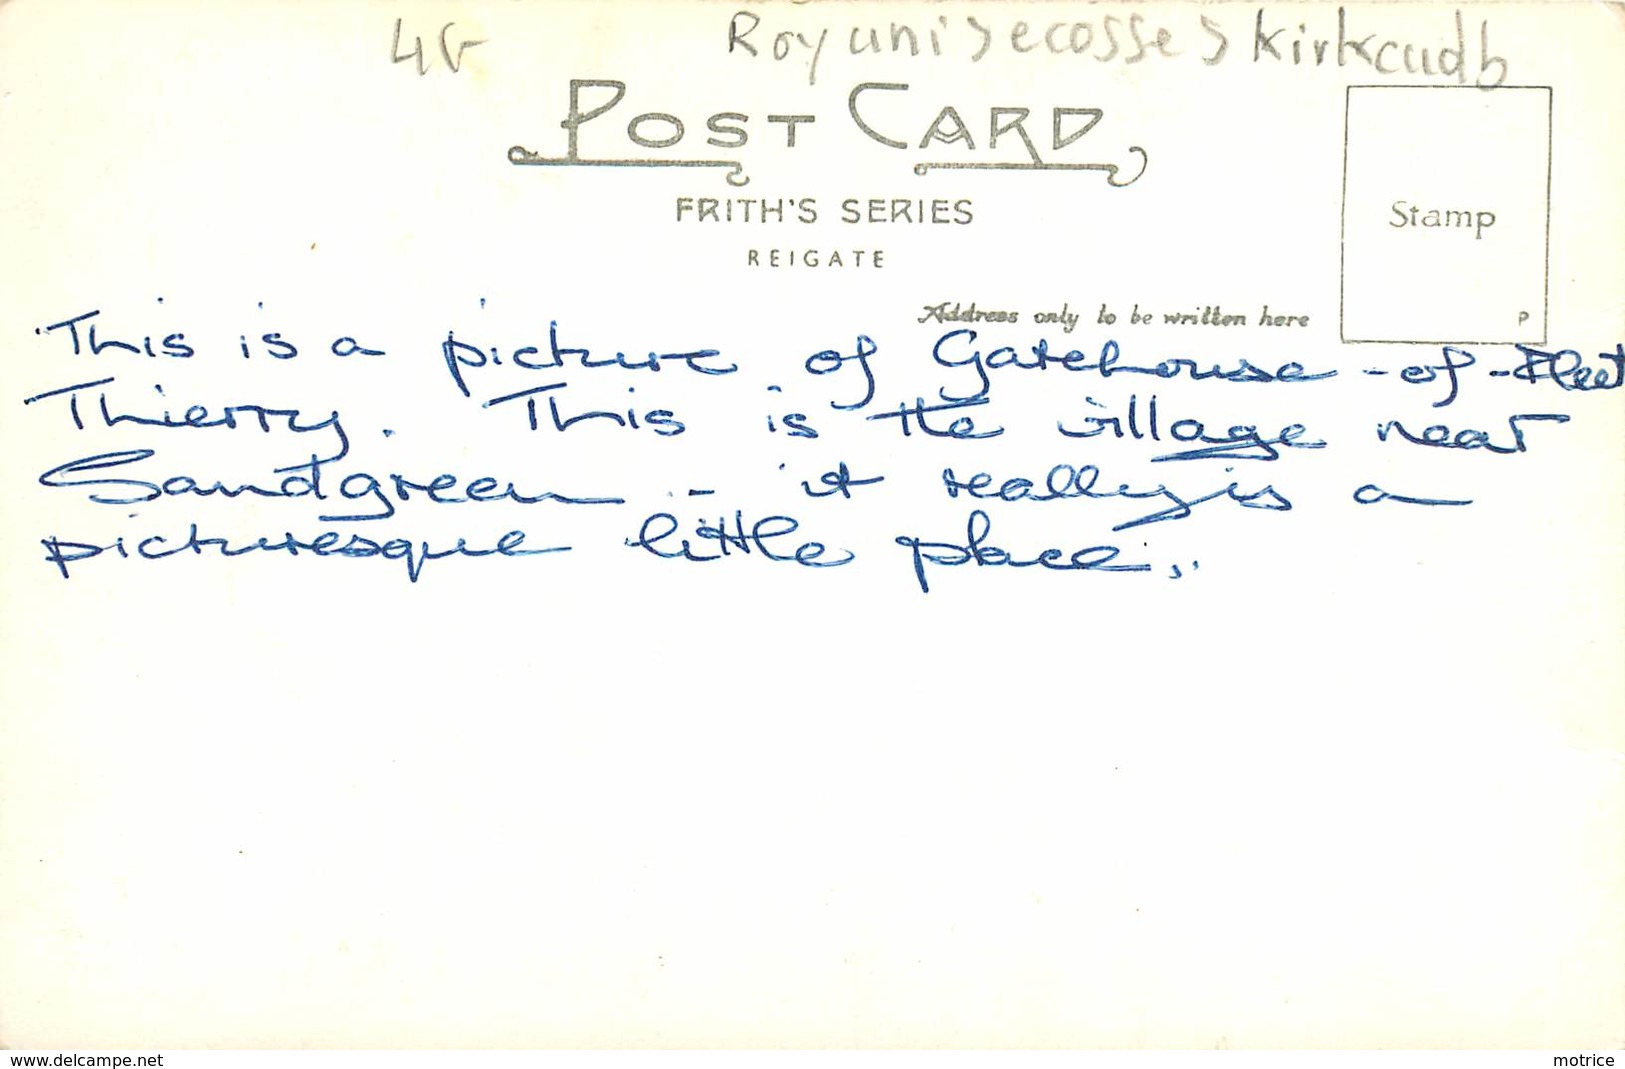 4G Royuni > ecosse > kirkcudb
POST CARD
FRITH'S SERIES
REIGATE
Stamp
P
Address only to be written here
This is a picture of Gatehouse-of-Fleet
Thierry. This is the village near
Sandgreen - it really is a
picturesque little place..
www.delcampe.net
motrice